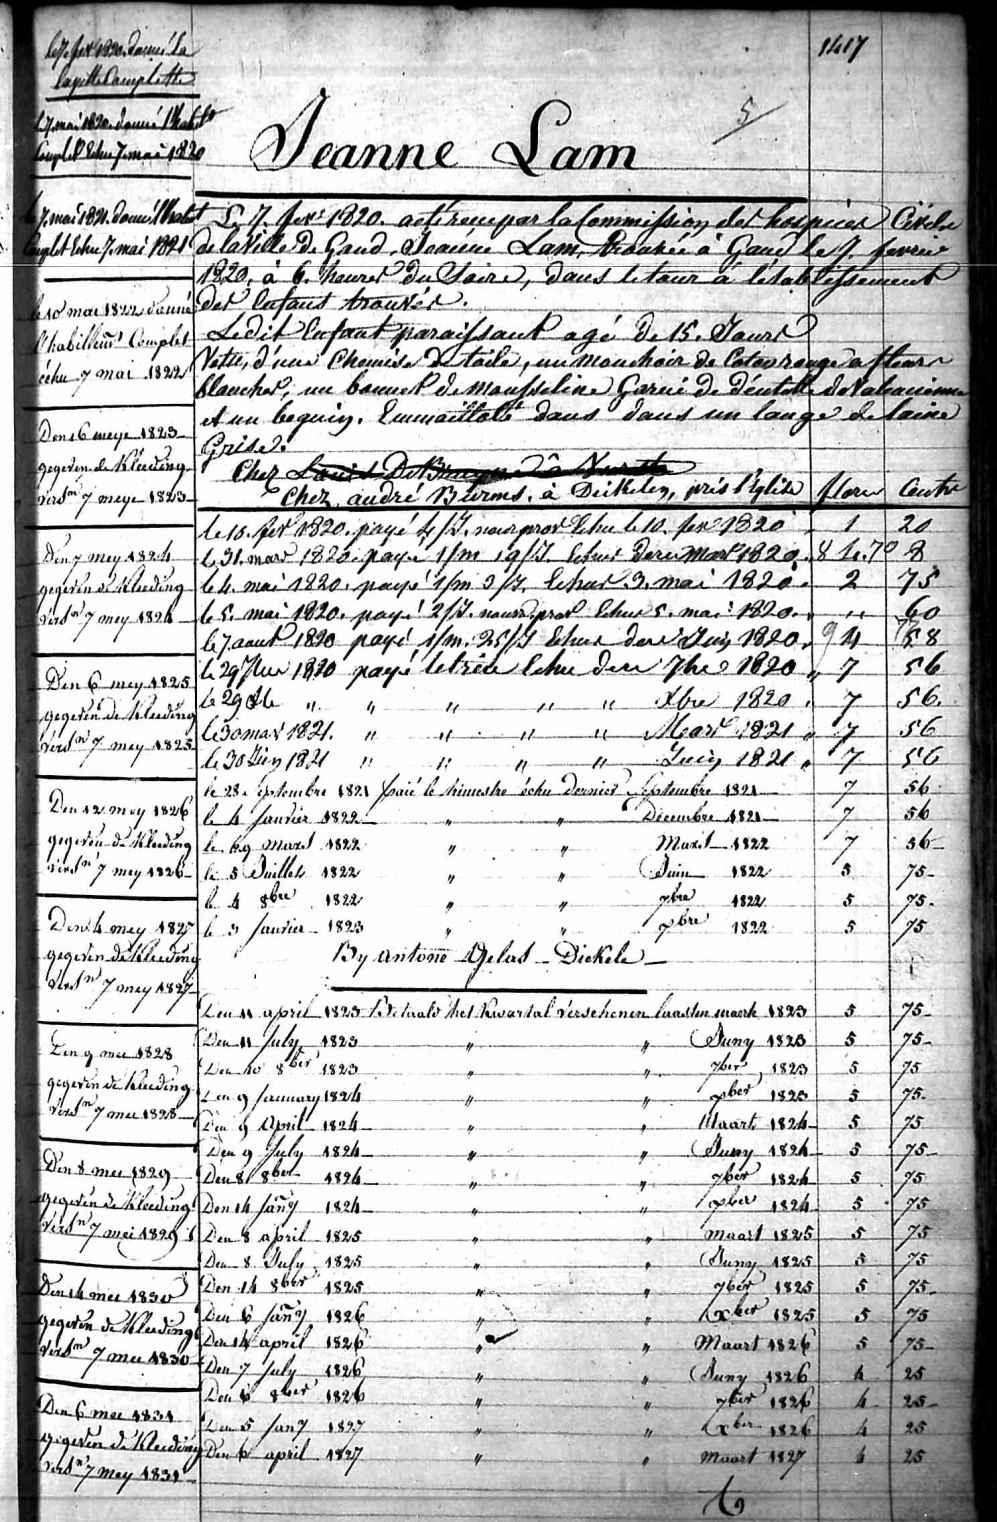 1417
5
Jeanne Lam
le 7 fevr 1820. donné la
layette Complette
le 7. mai 1820. donné l'habilt
Complet Echu 7. mai 1820
le 7. mai 1821. donné l'habilt
Complet Echu 7. mai 1821
le 10 mai 1822 donné
l'habillemt Complet
échu 7 mai 1822
Den 6 meye 1823
gegeven de Kleeding
versn 7 meye 1823
Den 7 mey 1824
gegeven de Kleeding
versn 7 mey 1824
Den 6 mey 1825
gegeven de Kleeding
versn 7 mey 1825
Den 12 mey 1826
gegeven de Kleeding
versn 7 mey 1826
Den 4 mey 1827
gegeven de Kleeding
versn 7 mey 1827
Den 9 mee 1828
gegeven de Kleeding
versn 7 mee 1828
Den 8 mee 1829
gegeven de Kleeding
versn 7 mei 1829
Den 14 mee 1830
gegeven de Kleeding
versn 7 mee 1830
Den 6 mee 1831
gegeven de Kleeding
versn 7 mey 1831
Le 7. fevr 1820. acte reçu par la Commission des hospices Civils
de la Ville de Gand. Jeanne Lam, trouvée à Gand le 7. fevrie
1820, à 6. heures du Soire, dans le tour à l'etablissement
des Enfans trouvés.
Ledit Enfant paraissant agé de 15. Jours
Vettu, d'une Chemise de toile, un mouchoir de Coton rouge a fleurs
blanches, un bonnet de mousseline Garnie de dentelle de Valancienne
et un beguin. Emmailloté dans dans un lange de laine
Grise.
Chez Louis De
Chez andré Berms, à Deikelen, près l'Eglise flores Cents
le 15. fevr 1820. payé 4/J. nour prov Echu le 10. fevr 1820 1 20
le 31. mars 1820. paye 1/m 19/J. Echus dere Mars 1820. 8 4.70 8
le 4. mai 1820. payé 1/m 3/J. Echus 3. mai 1820. 2 75
le 5. mai 1820. payé 2/J. nourr. prov Echus 5. mai 1820. " 60
le 7 aout 1820 payé 1/m. 25/J Echus dere Juin 1820. 4 58
le 29 7bre 1820 payé letrire Echu dere 7bre 1820 " 7 56
le 29 Xbe " " " " " Xbre 1820. 7 56.
le 30 mars 1821. " " " " " Mars 1821 " 7 56
le 30 Juin 1821 " " " " Juin 1821 " 7 56
le 28 Septembre 1821 paié le trimestre échu dernier Septembre 1821 7 56
le 4 Janvier 1822 " " Décembre 1821 7 56
le 29 Mars 1822 " " Mars 1822 7 56
le 5 Juillet 1822 " " Juin 1822 5 75
le 4 8bre 1822 " " 7bre 1822 5 75.
le 3 Janvier 1823 " " Xbre 1822 5 75
By antone Gelas - Dickele
Den 11 april 1823 Betaald het Kwartal verschenen laasten maerte 1823 5 75
Den 11 July 1823 " " Juny 1823 5 75
Den 10 8ber 1823 " " 7ber 1823 5 75
Den 9 January 1824 " " Xber 1823 5 75.
Den 9 April 1824 " " Maart 1824 5 75
Den 9 July 1824 " " Juny 1824 5 75
Den 8 8ber 1824 " " 7ber 1824 5 75
Den 14 Jany 1824 " " Xber 1824 5 75
Den 8 april 1825 " " maart 1825 5 75
Den 8 July 1825 " " Juny 1825 5 75
Den 14 8ber 1825 " " 7ber 1825 5 75
Den 6 Jany 1826 " " Xber 1825 5 75
Den 14 april 1826 " " Maart 1826 5 75
Den 7 July 1826 " " Juny 1826 4 25
Den 6 8ber 1826 " " 7ber 1826 4 25
Den 5 Jany 1827 " " Xber 1826 4 25
Den 6 april 1827 " " maart 1827 4 25